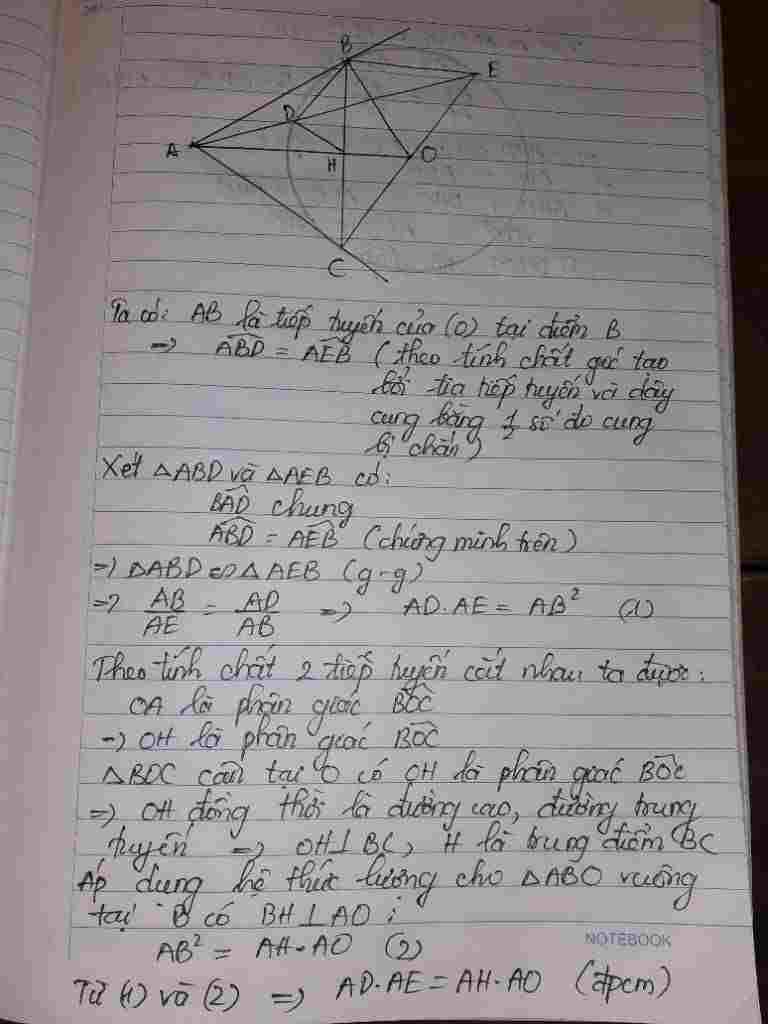 B
E
D
A
H
O
C
Ta có: AB là tiếp tuyến của (O) tại điểm B
=> \widehat{ABD} = \widehat{AEB} (theo tính chất góc tạo
bởi tia tiếp tuyến và dây
cung bằng \frac{1}{2} số đo cung
bị chắn)
Xét △ABD và △AEB có:
\widehat{BAD} chung
\widehat{ABD} = \widehat{AEB} (chứng minh trên)
=> △ABD ∽ △AEB (g-g)
=> \frac{AB}{AE} = \frac{AD}{AB} => AD.AE = AB² (1)
Theo tính chất 2 tiếp tuyến cắt nhau ta được:
OA là phân giác \widehat{BOC}
=> OH là phân giác \widehat{BOC}
△BOC cân tại O có OH là phân giác \widehat{BOC}
=> OH đồng thời là đường cao, đường trung
tuyến => OH⊥BC, H là trung điểm BC
Áp dụng hệ thức lượng cho △ABO vuông
tại B có BH⊥AO:
AB² = AH.AO (2)
NOTEBOOK
Từ (1) và (2) => AD.AE = AH.AO (đpcm)